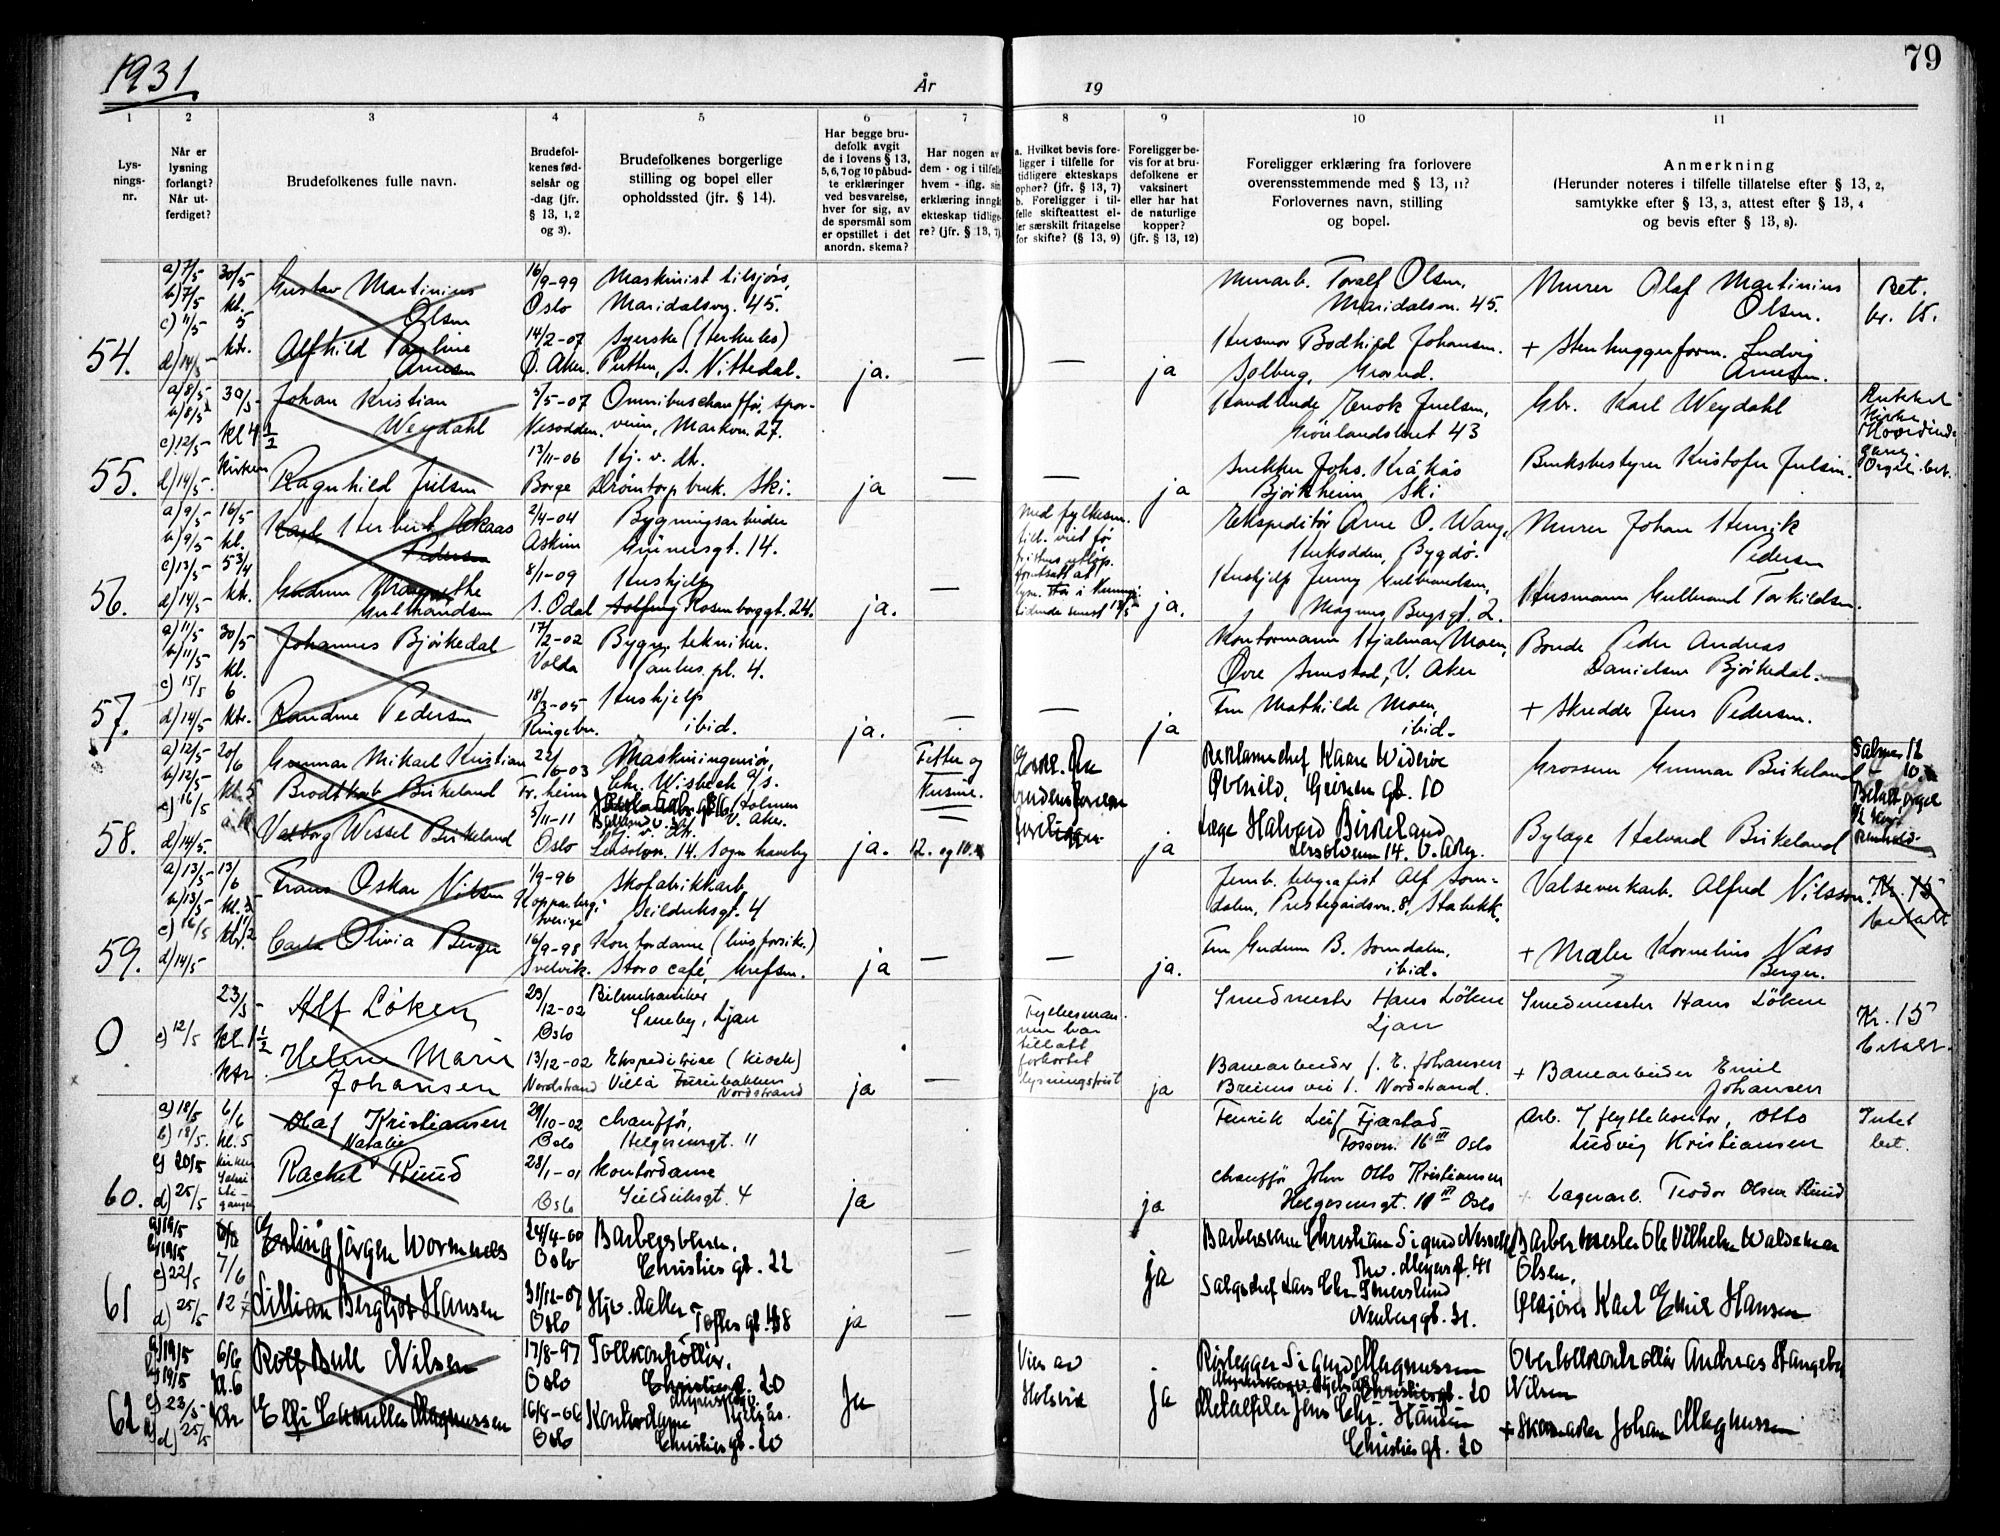 1931
År
19
79
1
2
3
4
5
6
7
8
9
10
11
Lys-
nings-
nr.
Når er
lysning
forlangt?
Når ut-
ferdiget?
Brudefolkenes fulle navn.
Brudefol-
kenes fød-
selsår og
-dag (jfr.
§ 13, 1, 2
og 3).
Brudefolkenes borgerlige
stilling og bopel eller
opholdssted (jfr. § 14).
Har begge bru-
defolk avgit
de i lovens § 13,
5, 6, 7 og 10 påbud-
te erklæringer
ved besvarelse,
hver for sig, av
de spørsmål som
er opstillet i det
anordn. skema?
Har nogen av
dem - og i tilfelle
hvem - iflg. sin
erklæring inngått
ekteskap tidlige-
re? (jfr. § 13, 7)
a. Hvilket bevis fore-
ligger i tilfelle for
tidligere ekteskaps
ophør? (jfr. § 13, 7)
b. Foreligger i til-
felle skifteattest el-
ler særskilt fritagelse
for skifte? (§ 13, 9)
Foreligger be-
vis for at bru-
defolkene er
vaksinert
eller har hat
de naturlige
kopper?
(jfr. § 13, 12)
Foreligger erklæring fra forlovere
overensstemmende med § 13, 11?
Forlovernes navn, stilling
og bopel.
Anmerkning
(Herunder noteres i tilfelle tillatelse efter § 13, 2,
samtykke efter § 13, 3, attest efter § 13, 4
og bevis efter § 13, 8).
54.
a) 7/5
b) 7/5
c) 11/5
d) 14/5
30/5
kl.
5
ktr.
Gustav Martinius
Olsen
16/9-99
Oslo
Maskinist tilsjøs,
Maridalsvg. 45.
Murarb. Toralf Olsen,
Maridalsvn. 45.
Murer Olaf Martinius
Olsen.
Bet.
kr. 15.
Alfhild Pauline
Arnesen
14/2-07
Ø. Aker.
Syerske (Herkules)
Putten, S. Nittedal.
ja.
—
—
ja
Husmor Bodhild Johansen.
Solberg, Grorud.
+ Stenhuggerform. Ludvig
Arnesen.
55.
a) 8/5
b) 8/5
c) 12/5
d) 14/5
30/5
kl 4 1/2
Kirken
Johan Kristian
Weydahl
5/5-07
Nesodden.
Omnibuschauffør, spor-
veien, Markvn. 27.
Handlende Enok Juelsen,
Grønlandsleret 43
Gbr. Karl Weydahl
Orgel. bet.
Ragnhild Juelsen
13/11-06
Borge
Hj. v. hr.
Drømtorp bruk. Ski.
ja
—
—
ja
Snekker Johs. Kråkås
Bjørkheim Ski
Bruksbestyrer Kristofer Juelsen.
56.
a) 9/5
b) 9/5
c) 13/5
d) 14/5
16/5
kl.
5 3/4
ktr.
Pedersen
2/4-04
Askim
Bygningsarbeider
Grünersgt. 14.
Ekspeditør Arne O. Wang,
Huksodden, Bygdø.
Murer Johan Henrik
Pedersen
Gudrun Margrethe
Gulbrandsen
8/1-09
S. Odal
Hushjelp
Rosenborggt. 24.
ja.
—
ja.
Hushjelp Jenny Gulbrandsen,
Magnus Bergsgt. 2.
Husmann Gulbrand Torkildsen.
57.
a) 11/5
b) 11/5
c) 15/5
d) 14/5
30/5
kl.
6
ktr.
Johannes Bjørkedal
17/2-02
Volda
Bygn. tekniker.
Kontormann Hjalmar Moen,
Øvre Smestad, V. Aker
Bonde Peder Andreas
Danielsen Bjørkedal.
Randine Pedersen
18/3-05
Ringebu.
Hushjelp
ibid.
ja.
—
—
ja
Fru Mathilde Moen,
ibid.
+ Skredder Jens Pedersen.
58.
a) 12/5
b) 12/5
c) 16/5
d) 14/5.
20/6
kl. 5
Gunnar Mikael Kristian
Brodtkorb Birkeland
22/6-03
Tr. heim
Maskiningeniør,
Chr. Wisbech A/S.
V. Aker.
Fetter og
Kusine.
Reklamechef Kaare Widerøe
Grossern Gunnar Birkeland
Valborg Wessel Birkeland
5/11-11
Oslo
Hj. v. hr.
14. Sogn haveby
ja.
ja
Læge Halvard Birkeland
14. V. Aker.
Bylæge Halvard Birkeland
59.
a) 13/5
b) 13/5
c) 16/5
d) 14/5
13/6
Frans Oskar Nilsen
1/9-96
Sverige
Skofabrikkarb.
Seilduksgt. 4
Jernb. telegrafist Alf Som-
dalen, Prestegaardsvn. 8, Stabekk.
Valseverkarb. Alfred Nilsson.
Kr. 15
betalt
Carla Olivia Berger
16/9-98
Svelvik.
Kontordame (livsforsikr.)
Storo café, Grefsen.
ja
—
—
ja.
Fru Gudrun B. Somdalen,
ibid.
+ Maler Kornelius Næss
Berger.
0
c) 12/5
23/5
kl 1 1/2
ktr.
Alf Løken
29/12-02
Oslo
Bilmekaniker
Ljan
Fylkesman-
nen har
tillatt
forkortet
lysningsfrist
Smedmester Hans Løken
Ljan
Smedmester Hans Løken
Kr. 15
betalt.
Helene Marie
Johansen
13/12-02
Nordstrand
Ekspeditrise (kiosk)
Villa Furubakken
Nordstrand
ja
—
ja
Banearbeider J. E. Johansen
Breiens vei 1. Nordstrand.
+ Banearbeider Emil
Johansen
60.
a) 18/5
b) 18/5.
c) 20/5
d) 25/5
6/6
kl. 5
Olaf Kristiansen
29/10-02
Oslo
Chauffør,
Helgesensgt. 11
Fenrik Leif Fjærstad
Fossvn. 16 III Oslo
Arb. i flyttekontor, Otto
Ludvig Kristiansen
Intet
bet.
Natalie
Rachel Ruud
28/1-01
Oslo
Kontordame
Seilduksgt. 4
ja
ja
Chauffør John Otto Kristiansen
Helgesensgt. 11 Oslo
+ Lagerarb. Teodor Olsen Ruud
61
a) 19/5
b) 19/5
c) 22/5
d) 25/5
7/6
Erling Jørgen Wormnes
24/4-00
Oslo
Barbersvenn.
Christies gt. 22
—
ja
Barbersvenn Christian Sigurd
Thv. Meyers gt. 41
Barbermester Ole Vilhelm Waldemar
Olsen.
Lillian Bergljot Hansen
31/12-07
Oslo
Hjv. datter
Toftes gt. 48
ja
Salgschef Lars Chr.
31.
Karl Emil Hansen
62
a) 19/5
b) 19/5
c) 23/5
d) 25/5
6/6
kl. 6
ktr
Rolf Bull Nilsen
17/8-97
Oslo
Tollkontrollør.
Christies gt. 20
Vies av
—
Rørlegger Sigurd Magnussen
Christiesgt. 20
Overtollkontrollør Andreas
Nilsen
Elfi Camilla Magnussen
16/8-06
Oslo
Kontordame
Christies gt. 20
Ja
ja
Metallfiler Jens Chr. Hansen
Christies gt. 20
+ Skomaker Johan Magnussen